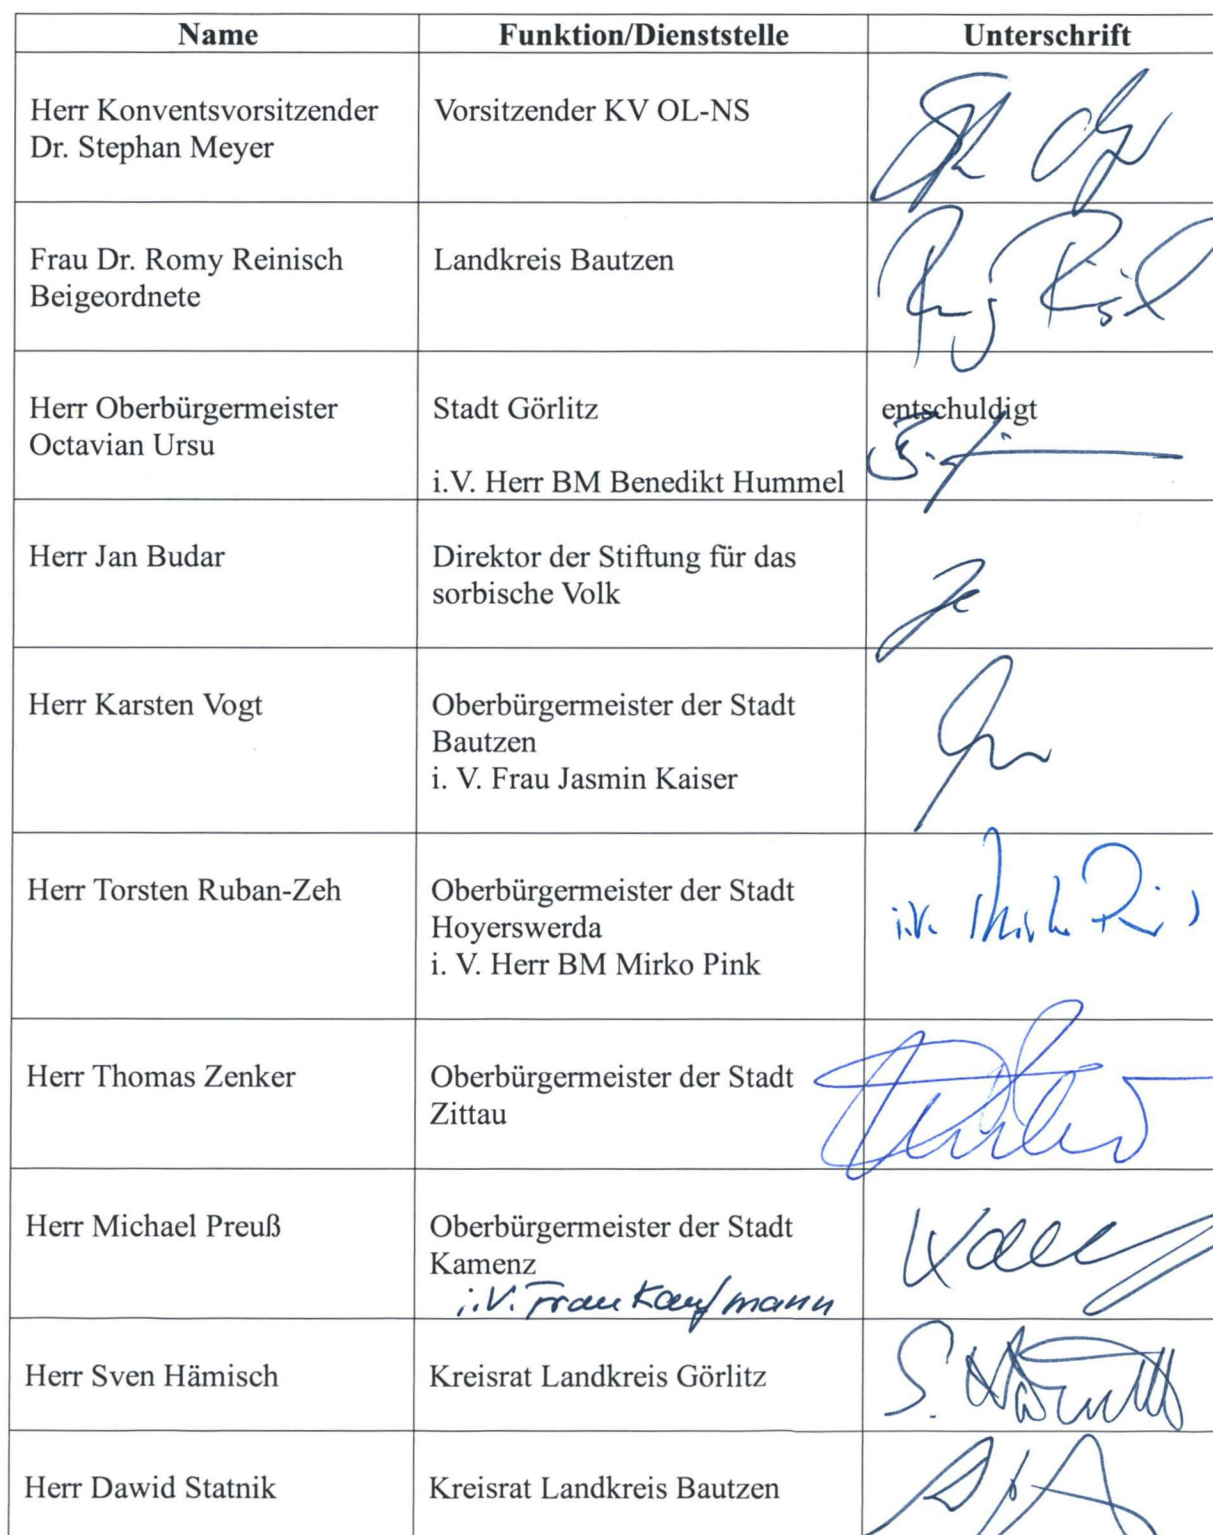 Name Funktion/Dienststelle Unterschrift
Herr Konventsvorsitzender Vorsitzender KV OL-NS
Dr. Stephan Meyer
Frau Dr. Romy Reinisch Landkreis Bautzen
Beigeordnete
Herr Oberbürgermeister Stadt Görlitz entschuldigt
Octavian Ursu
i.V. Herr BM Benedikt Hummel
Herr Jan Budar Direktor der Stiftung für das
sorbische Volk
Herr Karsten Vogt Oberbürgermeister der Stadt
Bautzen
i. V. Frau Jasmin Kaiser
Herr Torsten Ruban-Zeh Oberbürgermeister der Stadt i.V.
Hoyerswerda
i. V. Herr BM Mirko Pink
Herr Thomas Zenker Oberbürgermeister der Stadt
Zittau
Herr Michael Preuß Oberbürgermeister der Stadt
Kamenz
i.V. Frau Kaufmann
Herr Sven Hämisch Kreisrat Landkreis Görlitz
Herr Dawid Statnik Kreisrat Landkreis Bautzen